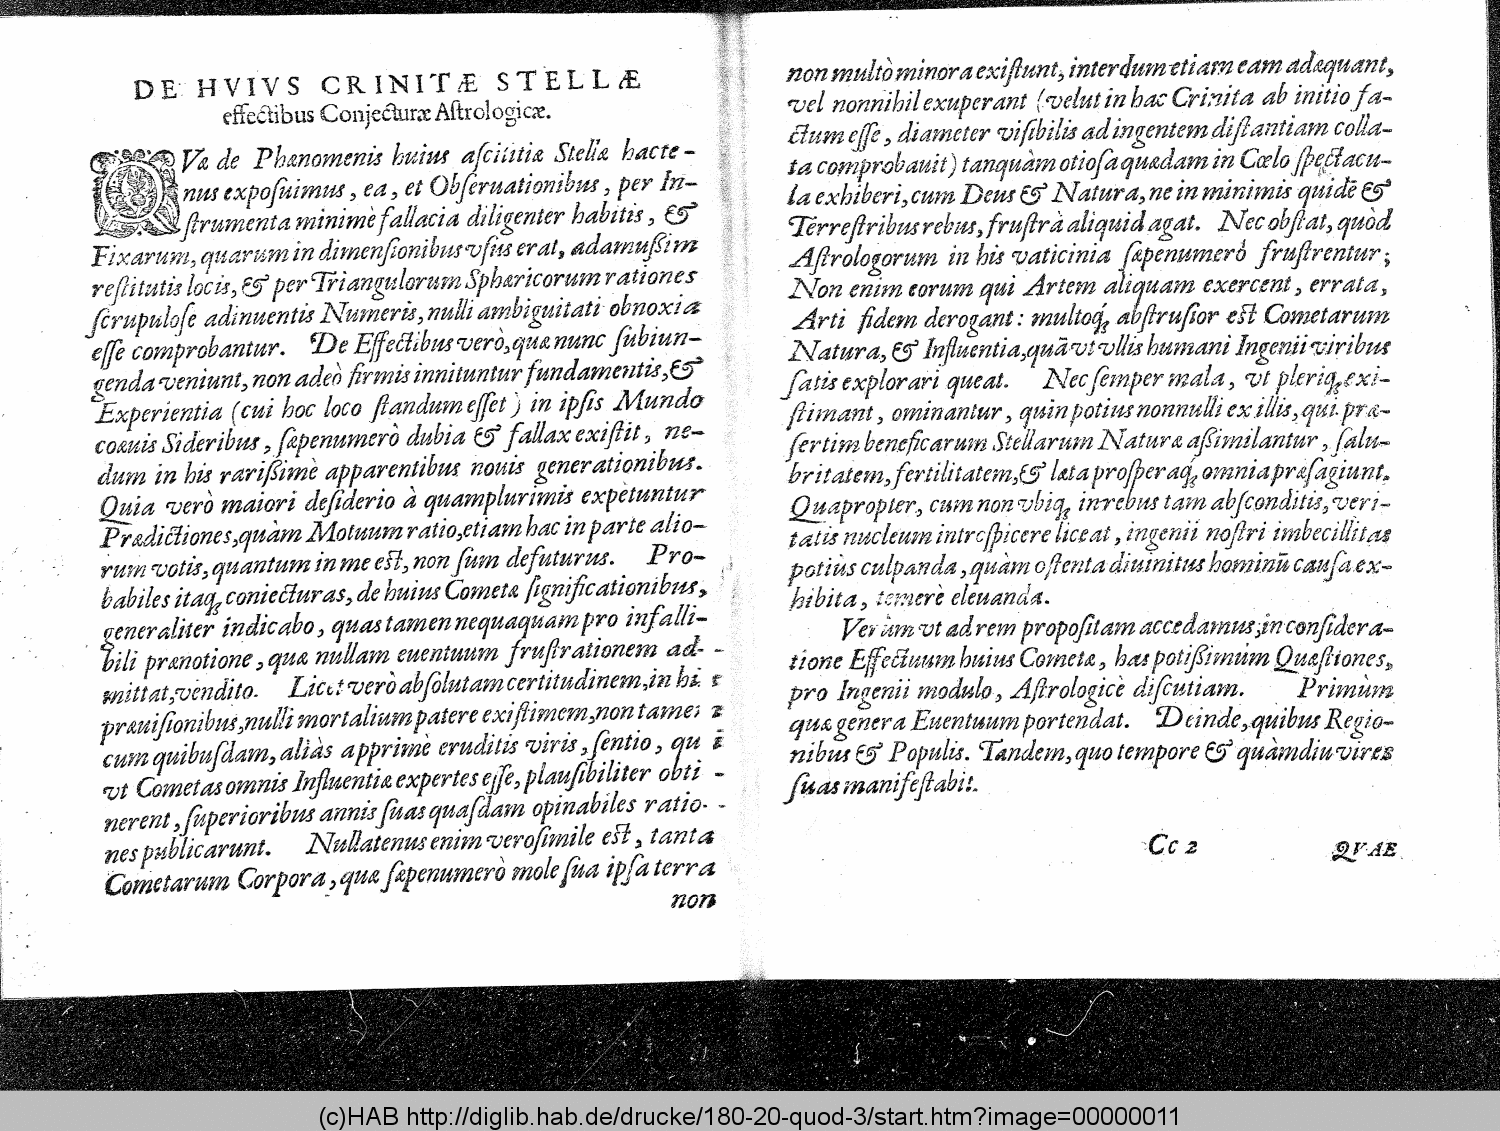 DE HVIVS CRINITÆ STELLÆ
effectibus Conjecturæ Aſtrologicæ.
QVæ de Phænomenis huius aſcititiæ Stellæ hacte-
nus expoſuimus, ea, et Obſeruationibus, per In-
ſtrumenta minimè fallacia diligenter habitis, &
Fixarum, quarum in dimenſionibus vſus erat, adamußim
reſtitutis locis, & per Triangulorum Sphæricorum rationes
ſcrupuloſe adinuentis Numeris, nulli ambiguitati obnoxia
eſſe comprobantur. De Effectibus verò, quæ nunc ſubiun-
genda veniunt, non adeò firmis innituntur fundamentis, &
Experientia (cui hoc loco ſtandum eſſet) in ipſis Mundo
coæuis Sideribus, ſæpenumerò dubia & fallax exiſtit, ne-
dum in his rarißimè apparentibus nouis generationibus.
Quia verò maiori deſiderio à quamplurimis expetuntur
Prædictiones, quàm Motuum ratio, etiam hac in parte alio-
rum votis, quantum in me eſt, non ſum defuturus. Pro-
babiles itaq; coniecturas, de huius Cometæ ſignificationibus,
generaliter indicabo, quas tamen nequaquam pro infalli-
bili prænotione, quæ nullam euentuum fruſtrationem ad-
mittat, vendito. Licet verò abſolutam certitudinem, in hi
præuiſionibus, nulli mortalium patere exiſtimem, non tame
cum quibuſdam, aliàs apprimè eruditis viris, ſentio, qu i
vt Cometas omnis Influentiæ expertes eſſe, plauſibiliter obti-
nerent, ſuperioribus annis ſuas quaſdam opinabiles ratio-
nes publicarunt. Nullatenus enim veroſimile eſt, tanta
Cometarum Corpora, quæ ſæpenumerò mole ſua ipſa terra
non
non multò minora exiſtunt, interdum etiam eam adæquant,
vel nonnihil exuperant (velut in hac Crinita ab initio fa-
ctum eſſe, diameter viſibilis ad ingentem diſtantiam colla-
ta comprobauit) tanquàm otioſa quædam in Cœlo ſpectacu-
la exhiberi, cum Deus & Natura, ne in minimis quidē &
Terreſtribus rebus, fruſtrà aliquid agat. Nec obſtat, quòd
Aſtrologorum in his vaticinia ſæpenumerò fruſtrentur;
Non enim eorum qui Artem aliquam exercent, errata,
Arti fidem derogant: multoq́; abſtruſior eſt Cometarum
Natura, & Influentia, quā vt vllis humani Ingenii viribus
ſatis explorari queat. Nec ſemper mala, vt pleriq; exi-
ſtimant, ominantur, quin potius nonnulli ex illis, qui præ-
ſertim beneficarum Stellarum Naturæ aßimilantur, ſalu-
britatem, fertilitatem, & læta proſperaq́; omnia præſagiunt.
Quapropter, cum non vbiq; in rebus tam abſconditis, veri-
tatis nucleum introſpicere liceat, ingenii noſtri imbecillitas
potiùs culpanda, quàm oſtenta diuinitus hominū cauſa ex-
hibita, temerè eleuanda.
Verùm vt ad rem propoſitam accedamus, in conſidera-
tione Effectuum huius Cometæ, has potißimùm Quæſtiones,
pro Ingenii modulo, Aſtrologicè diſcutiam. Primùm
quæ genera Euentuum portendat. Deinde, quibus Regio-
nibus & Populis. Tandem, quo tempore & quàmdiu vires
ſuas manifeſtabit.
Cc 2 QVAE
(c)HAB http://diglib.hab.de/drucke/180-20-quod-3/start.htm?image=00000011